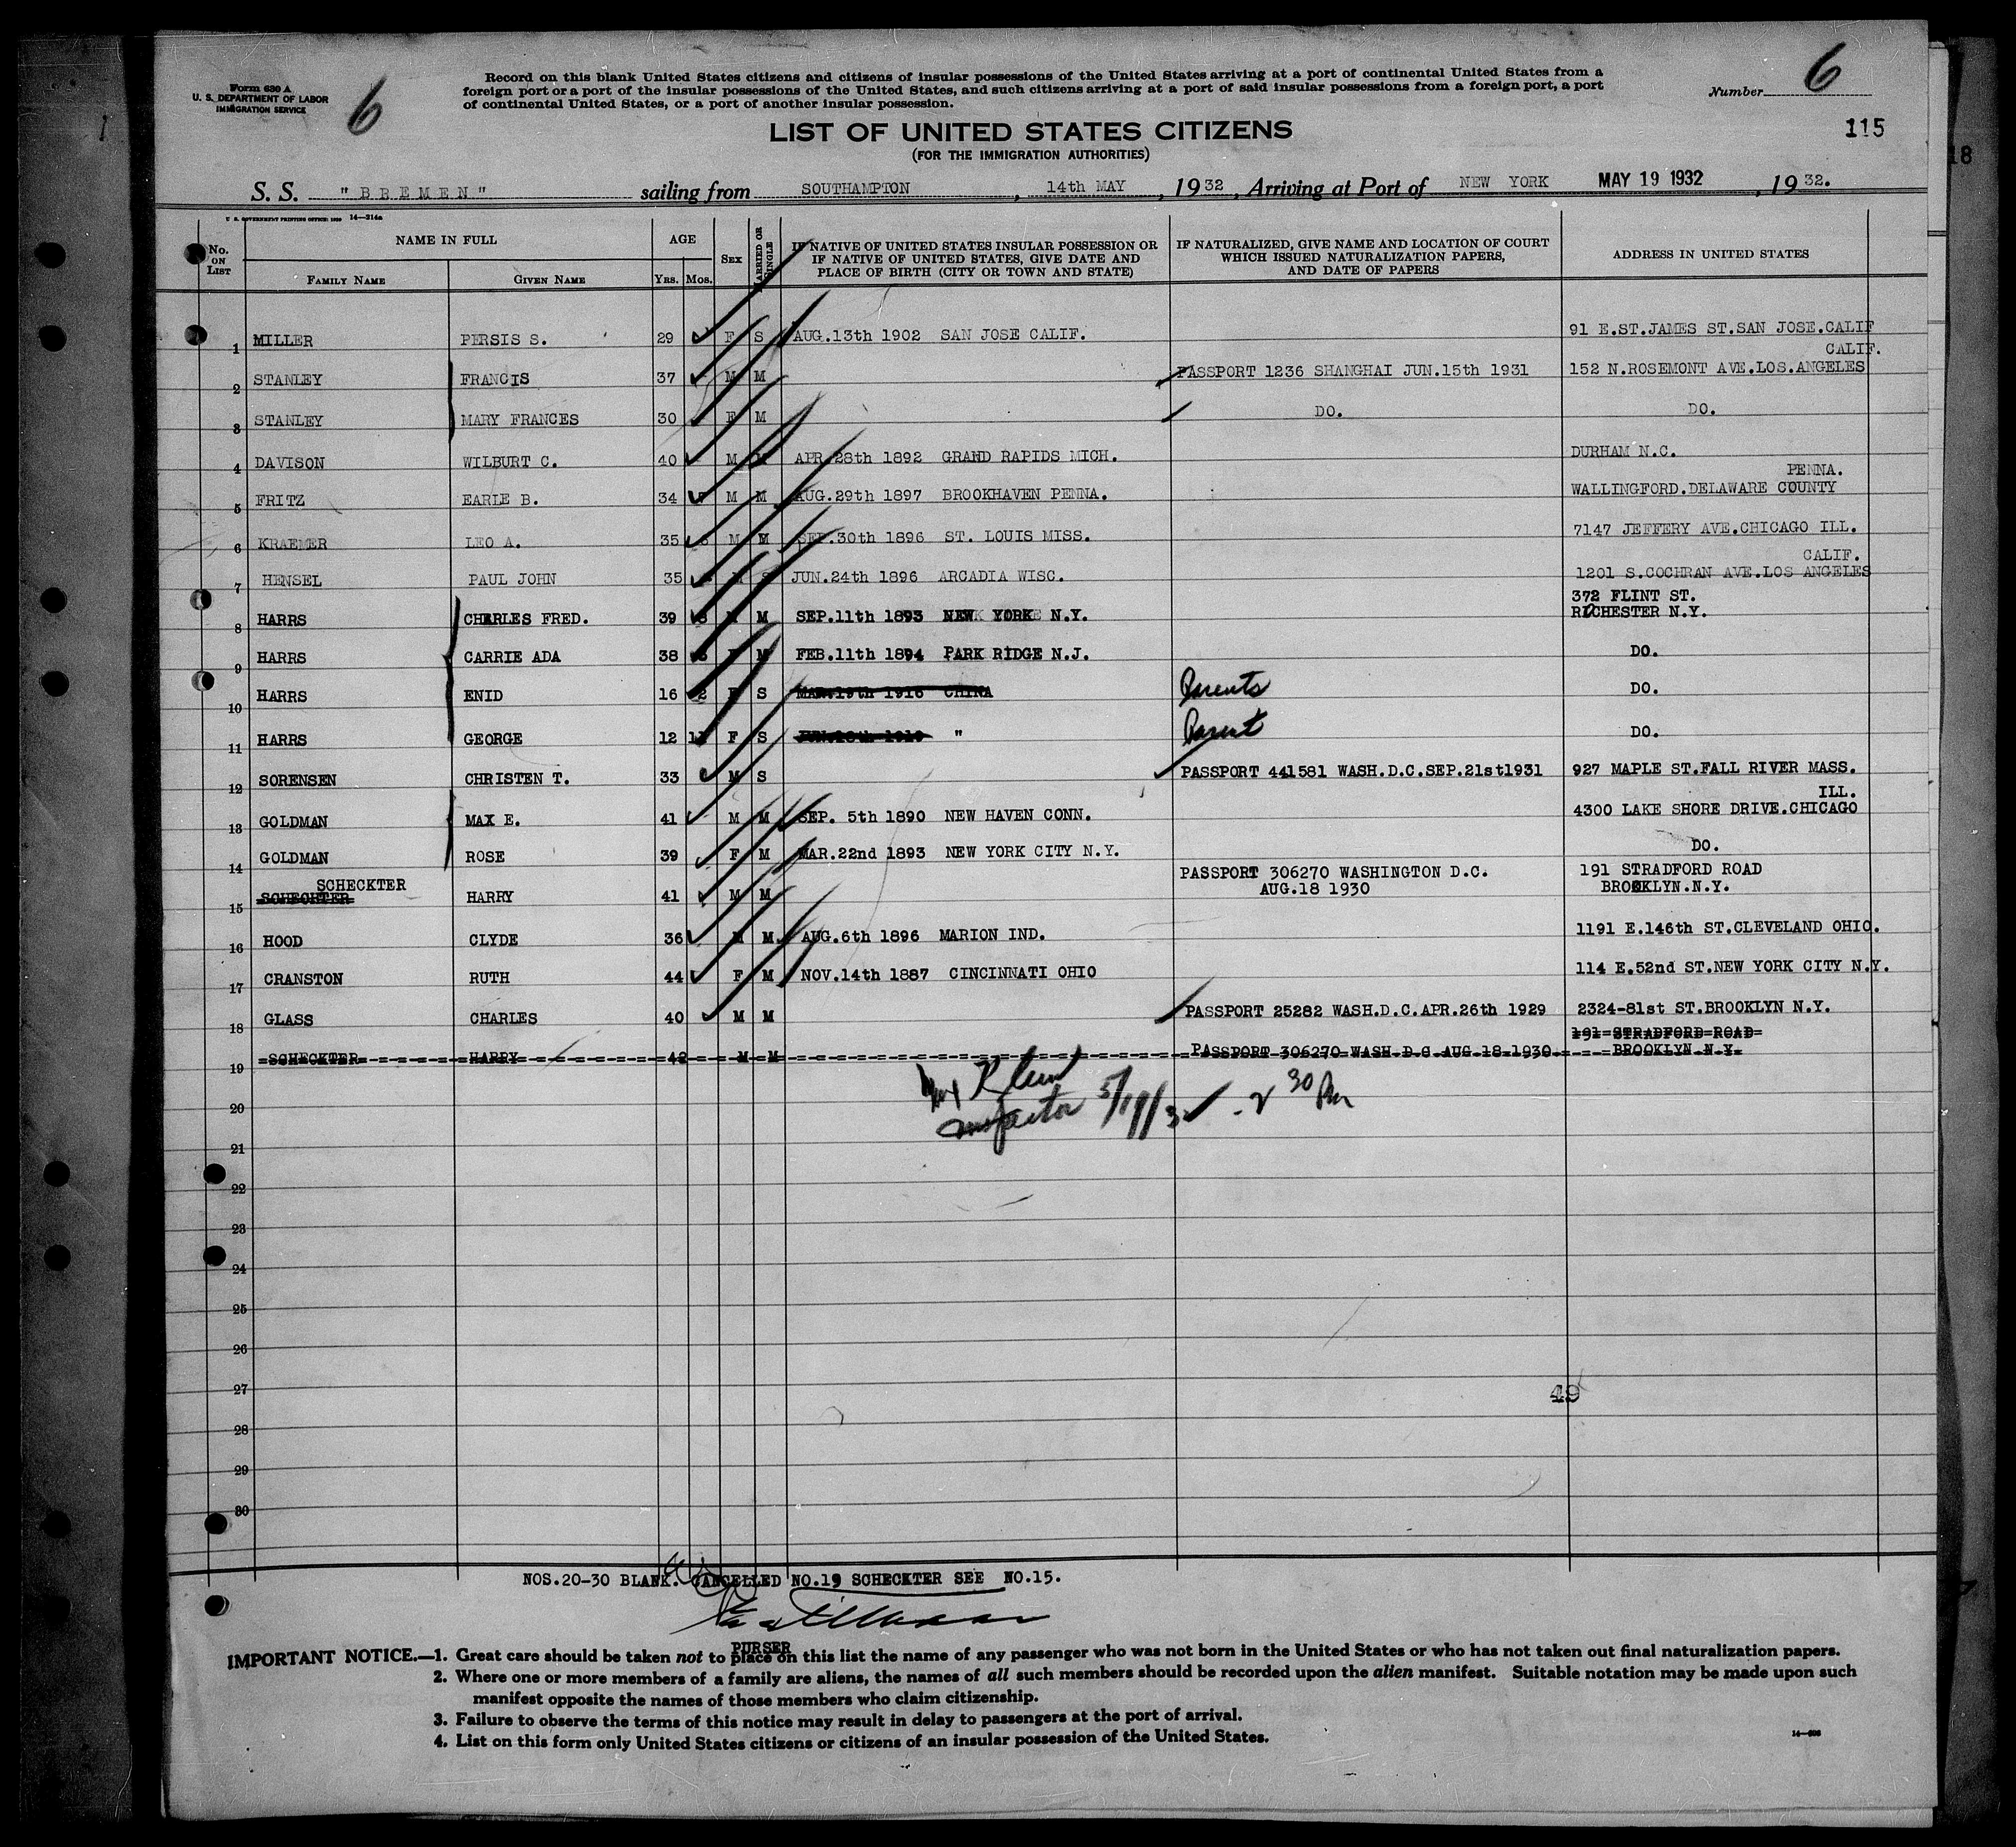 Form 630 A
U. S. DEPARTMENT OF LABOR
IMMIGRATION SERVICE
6
Record on this blank United States citizens and citizens of insular possessions of the United States arriving at a port of continental United States from a
foreign port or a port of the insular possessions of the United States, and such citizens arriving at a port of said insular possessions from a foreign port, a port
of continental United States, or a port of another insular possession.
Number 6
LIST OF UNITED STATES CITIZENS
(FOR THE IMMIGRATION AUTHORITIES)
115
18
S. S. "BREMEN" sailing from SOUTHAMPTON, 14th MAY, 1932, Arriving at Port of NEW YORK MAY 19 1932, 1932.
U. S. GOVERNMENT PRINTING OFFICE: 1930 14—314a
No. ON LIST
NAME IN FULL
FAMILY NAME GIVEN NAME
AGE
YRS. MOS.
SEX
MARRIED OR SINGLE
IF NATIVE OF UNITED STATES INSULAR POSSESSION OR
IF NATIVE OF UNITED STATES, GIVE DATE AND
PLACE OF BIRTH (CITY OR TOWN AND STATE)
IF NATURALIZED, GIVE NAME AND LOCATION OF COURT
WHICH ISSUED NATURALIZATION PAPERS,
AND DATE OF PAPERS
ADDRESS IN UNITED STATES
1 MILLER PERSIS S. 29 F S AUG.13th 1902 SAN JOSE CALIF. 91 E.ST.JAMES ST.SAN JOSE.CALIF
CALIF.
2 STANLEY FRANCIS 37 M M PASSPORT 1236 SHANGHAI JUN.15th 1931 152 N.ROSEMONT AVE.LOS.ANGELES
3 STANLEY MARY FRANCES 30 F M DO. DO.
4 DAVISON WILBURT C. 40 M M APR.28th 1892 GRAND RAPIDS MICH. DURHAM N.C.
PENNA.
5 FRITZ EARLE B. 34 M M AUG.29th 1897 BROOKHAVEN PENNA. WALLINGFORD.DELAWARE COUNTY
6 KRAEMER LEO A. 35 M M SEP.30th 1896 ST. LOUIS MISS. 7147 JEFFERY AVE.CHICAGO ILL.
CALIF.
7 HENSEL PAUL JOHN 35 M S JUN.24th 1896 ARCADIA WISC. 1201 S.COCHRAN AVE.LOS ANGELES
372 FLINT ST.
8 HARRS CHARLES FRED. 39 M SEP.11th 1893 NEW YORK N.Y. ROCHESTER N.Y.
9 HARRS CARRIE ADA 38 M FEB.11th 1894 PARK RIDGE N.J. DO.
10 HARRS ENID 16 2 F S MAR.19th 1916 CHINA Parents DO.
11 HARRS GEORGE 12 11 F S " Parent DO.
12 SORENSEN CHRISTEN T. 33 M S PASSPORT 441581 WASH.D.C.SEP.21st1931 927 MAPLE ST.FALL RIVER MASS.
ILL.
13 GOLDMAN MAX E. 41 M M SEP. 5th 1890 NEW HAVEN CONN. 4300 LAKE SHORE DRIVE.CHICAGO
14 GOLDMAN ROSE 39 F M MAR.22nd 1893 NEW YORK CITY N.Y. DO.
SCHECKTER PASSPORT 306270 WASHINGTON D.C. 191 STRADFORD ROAD
15 HARRY 41 M M AUG.18 1930 BROOKLYN.N.Y.
16 HOOD CLYDE 36 M M AUG.6th 1896 MARION IND. 1191 E.146th ST.CLEVELAND OHIO.
17 CRANSTON RUTH 44 F M NOV.14th 1887 CINCINNATI OHIO 114 E.52nd ST.NEW YORK CITY N.Y.
18 GLASS CHARLES 40 M M PASSPORT 25282 WASH.D.C.APR.26th 1929 2324-81st ST.BROOKLYN N.Y.
191 STRADFORD ROAD
19 SCHECKTER HARRY 42 M M PASSPORT 306270 WASH.D.C.AUG.18.1930 BROOKLYN.N.Y.
Klein
Inspector 5/19/32 - 2 30 Pm
20
21
22
23
24
25
26
27
49
28
29
30
NOS.20-30 BLANK. CANCELLED NO.19 SCHECKTER SEE NO.15.
PURSER
IMPORTANT NOTICE.—1. Great care should be taken not to place on this list the name of any passenger who was not born in the United States or who has not taken out final naturalization papers.
2. Where one or more members of a family are aliens, the names of all such members should be recorded upon the alien manifest. Suitable notation may be made upon such
manifest opposite the names of those members who claim citizenship.
3. Failure to observe the terms of this notice may result in delay to passengers at the port of arrival.
4. List on this form only United States citizens or citizens of an insular possession of the United States.